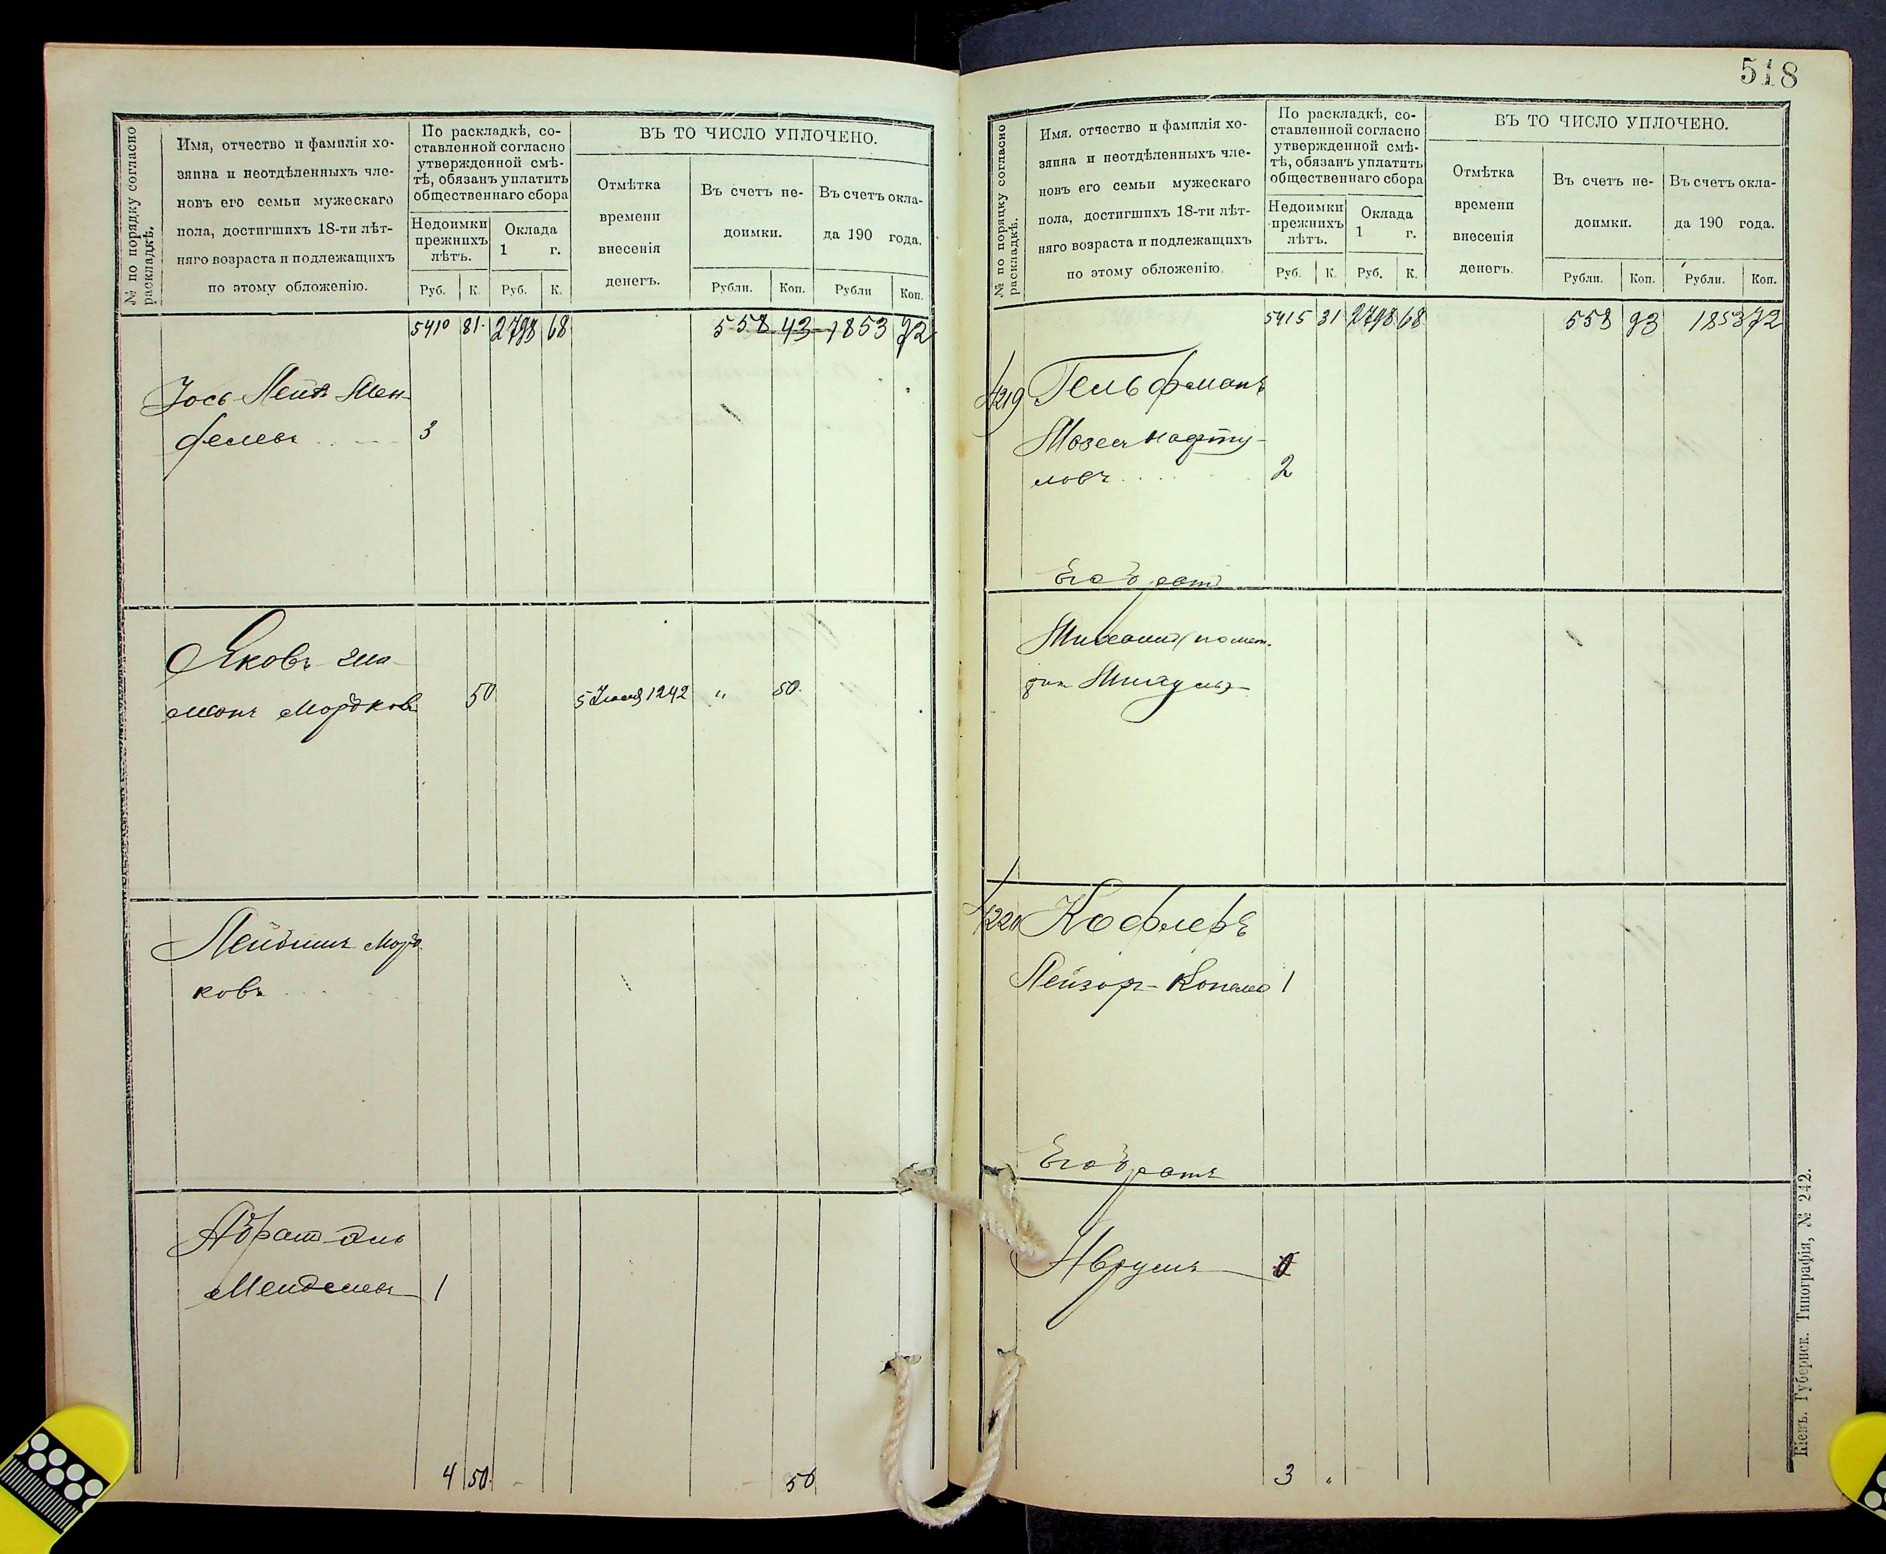 518
№ по порядку согласно раскладкѣ.
Имя, отчество и фамилія хо-
зяина и неотдѣленныхъ чле-
новъ его семьи мужескаго
пола, достигшихъ 18-ти лѣт-
няго возраста и подлежащихъ
по этому обложенію.
По раскладкѣ, со-
ставленной согласно
утвержденной смѣ-
тѣ, обязанъ уплатить
общественнаго сбора
Недоимки
прежнихъ
лѣтъ.
Оклада
1 г.
Руб. К. Руб. К.
ВЪ ТО ЧИСЛО УПЛОЧЕНО.
Отмѣтка
времени
внесенія
денегъ.
Въ счетъ не-
доимки.
Въ счетъ окла-
да 190 года.
Рубли. Коп. Рубли Коп.
5410 81 2798 68 558 43 1853 72
Іось Лейб Мен-
делевъ 3
Яковъ
Мордков 50 5 1242 " 50.
Лейбишъ Морд
ковъ
Абрам
Менделевъ 1
4 50 - - 50
№ по порядку согласно раскладкѣ.
Имя, отчество и фамилія хо-
зяина и неотдѣленныхъ чле-
новъ его семьи мужескаго
пола, достигшихъ 18-ти лѣт-
няго возраста и подлежащихъ
по этому обложенію.
По раскладкѣ, со-
ставленной согласно
утвержденной смѣ-
тѣ, обязанъ уплатить
общественнаго сбора
Недоимки
прежнихъ
лѣтъ.
Оклада
1 г.
Руб. К. Руб. К.
ВЪ ТО ЧИСЛО УПЛОЧЕНО.
Отмѣтка
времени
внесенія
денегъ.
Въ счетъ не-
доимки.
Въ счетъ окла-
да 190 года.
Рубли. Коп. Рубли. Коп.
5415 31 2798 68 558 93 1853 72
1219 Гельфманъ
Мозес Нафту-
ловъ 2
Его братъ
1220 Кофлеръ
Лейзор- Копело 1
Его братъ
Аврумъ
3 "
Кіевъ. Губернск. Типографія, № 242.